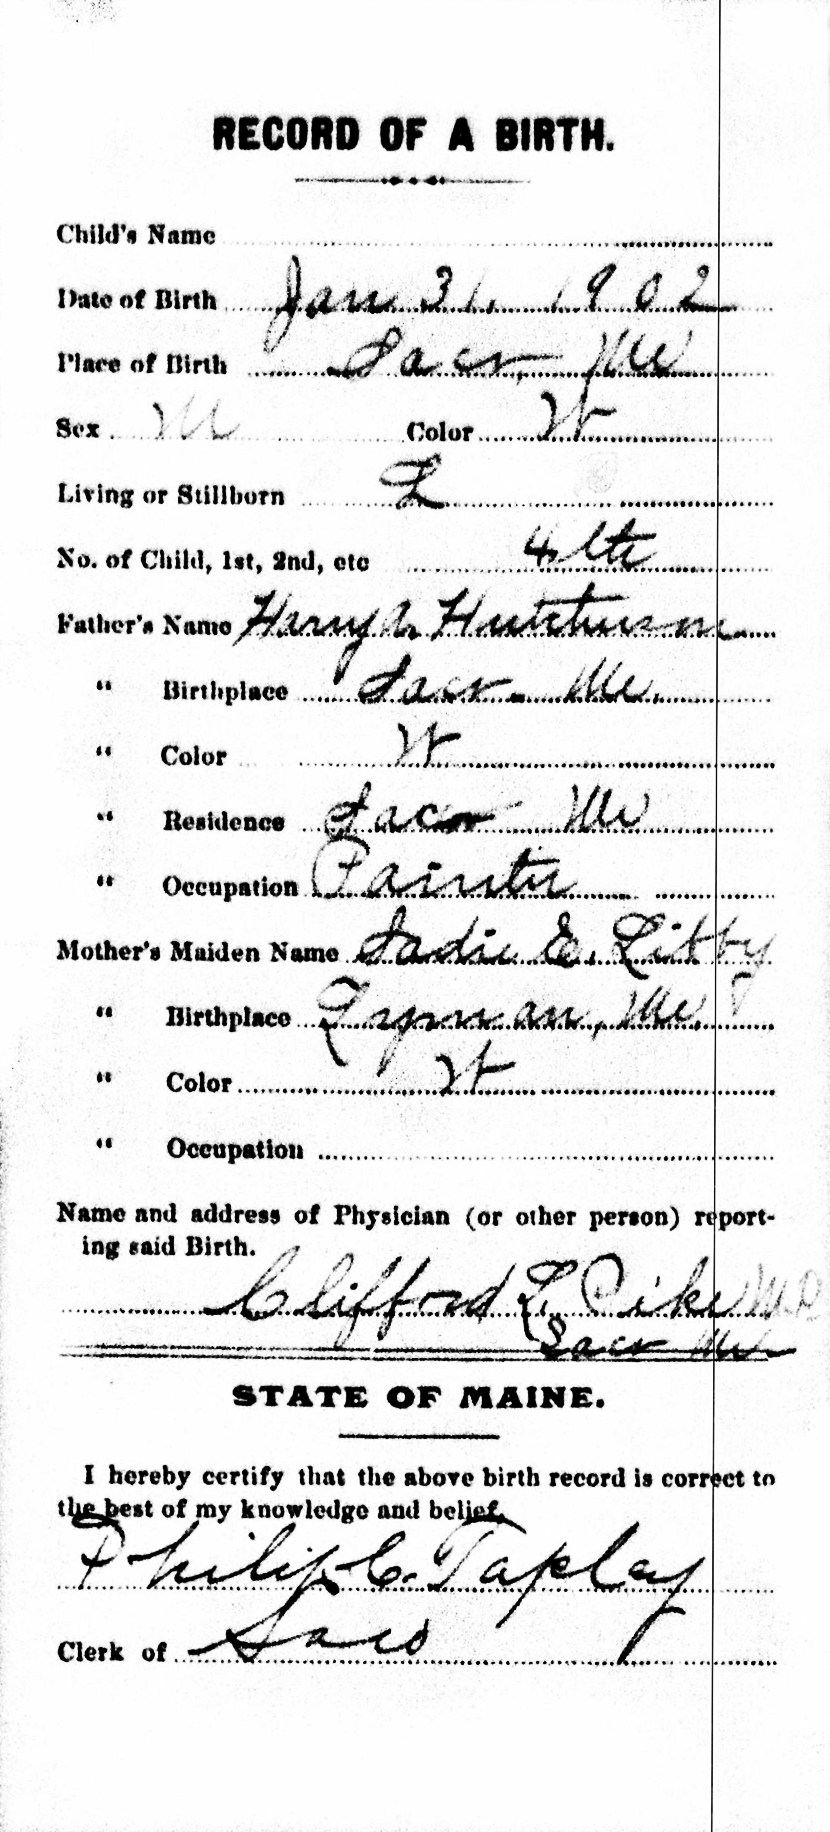 RECORD OF A BIRTH.
Child's Name
Date of Birth Jan 31, 1902
Place of Birth Saco, Me
Sex M Color W
Living or Stillborn L
No. of Child, 1st, 2nd, etc 4th
Father's Name Harry A. Hutchinson
" Birthplace Saco. Me.
" Color W
" Residence Saco Me
" Occupation Painter
Mother's Maiden Name Sadie E. Libby
" Birthplace Lyman, Me.
" Color W
" Occupation
Name and address of Physician (or other person) report-
ing said Birth.
Clifford L. Pike M.D
Saco Me
STATE OF MAINE.
I hereby certify that the above birth record is correct to
the best of my knowledge and belief.
Philip C. Tapley
Clerk of Saco